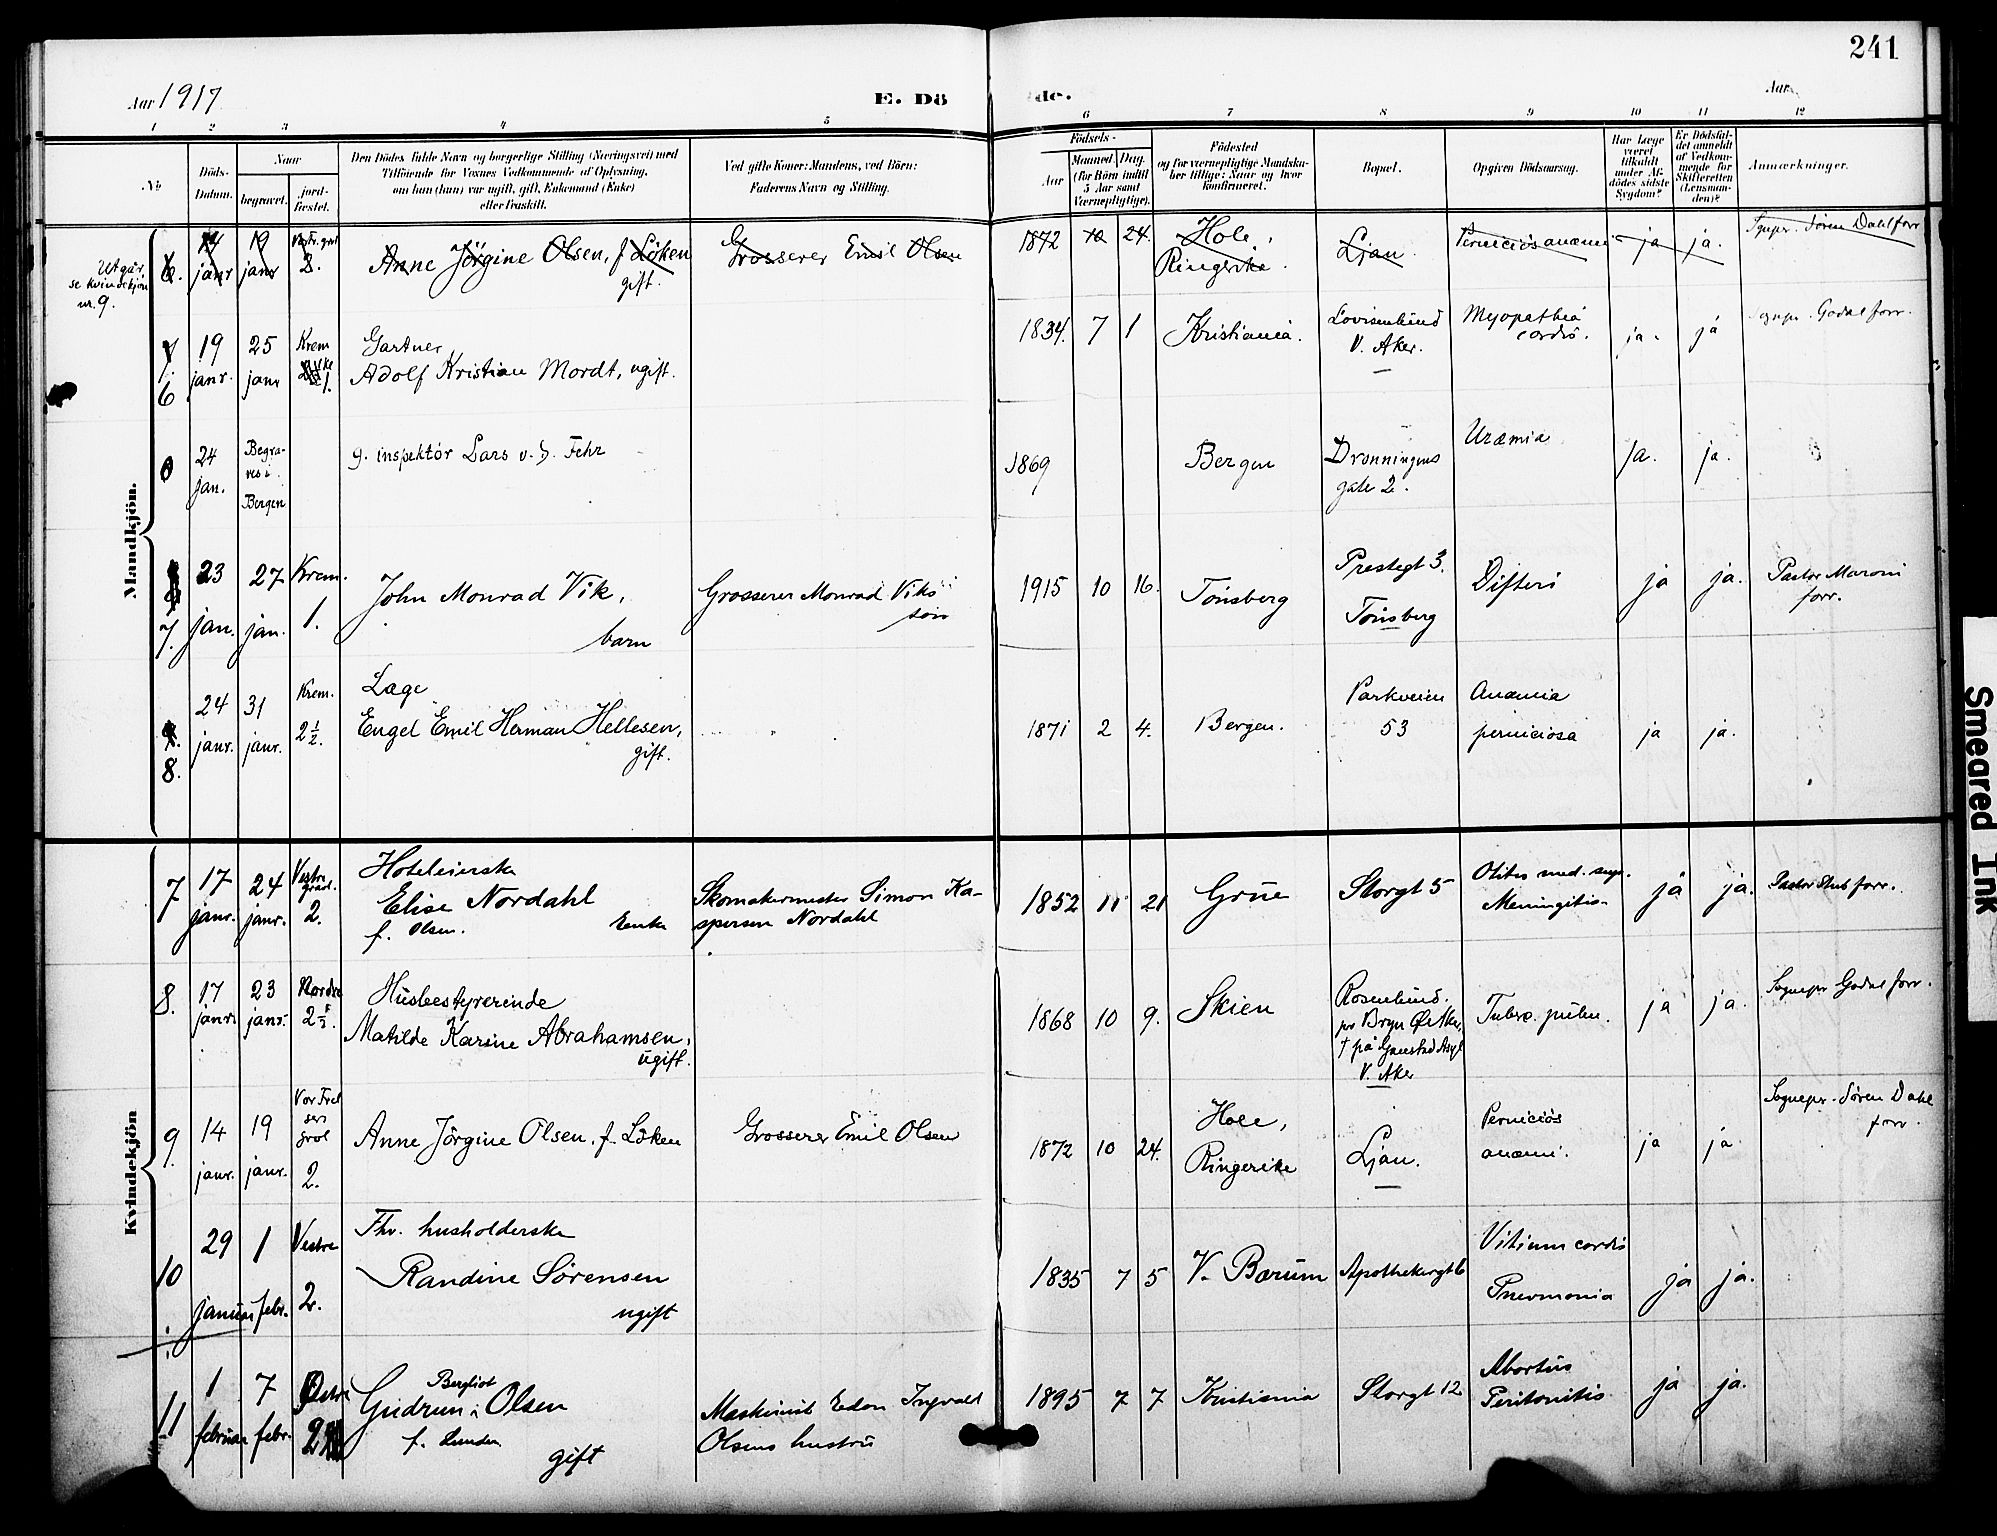 241
Aar 1917
E. Dö de.
Aar
1 2 3 4 5 6 7 8 9 10 11 12
No
Döds-
Datum.
Naar
begravet.
jord-
fæstet.
Den Dödes fulde Navn og borgerlige Stilling (Næringsvei) med
Tilföiende for Voxnes Vedkommende af Oplysning,
om han (hun) var ugift, gift, Enkemand (Enke)
eller fraskilt.
Ved gifte Koner: Mandens, ved Börn:
Faderens Navn og Stilling.
Födsels-
Aar
Maaned. Dag.
(for Börn indtil
5 Aar samt
Værnepligtige).
Födested
og for værnepligtige Mandska-
ber tillige: Naar og hvor
konfirmeret.
Bopæl.
Opgiven Dödsaarsag.
Har Læge
været
tilkaldt
under Af-
dödes sidste
Sygdom?
Er Dödsfal-
det anmeldt
af Vedkom-
mende for
Skifteretten
(Lensman-
den)?
Anmærkninger.
Mandkjön.
Utgår,
se kvindekjön
nr. 9.
6. 14 janr 19 janr 2.
Anne Jörgine Olsen, f Löken
gift.
Grosserer Emil Olsen
1872 10 24.
Hole,
Ringerike.
Ljan.
Perniciös anæmi
ja ja.
Sognepr. Sören Dahl forr
7.
6
19 janr. 25 janr Krem 1.
Gartner
Adolf Kristian Mordt, ugift.
1834. 7 1
Kristiania.
Lovisenlund
V. Aker.
Myopathia
cordis.
ja. ja
Sognepr. Godal forr.
0
24 jan.
Begra-
ves i
Bergen
g. inspektör Lars v. d. Fehr
1869
Bergen
Dronningens
gate 2.
Uræmia
Ja. ja.
7.
23 jan. 27 jan. Krem. 1.
John Monrad Vik,
barn
Grosserer Monrad Viks
sön
1915 10 16.
Tönsberg
Prestegt 3.
Tönsberg
Difteri
ja ja.
Pastor Maroni
forr.
8.
24 janr. 31 janr. Krem. 2½.
Læge
Engel Emil Herman Hellesen,
gift.
1871 2 4.
Bergen.
Parkveien
53
Anæmia
perniciosa
ja ja.
Kvindekjön
7
17 janr. 24 janr. Vestre grav. 2.
Hoteleierske
Elise Nordahl
f. Olsen. Enke
Skomakermester Simon Ka-
spersen Nordahl
1852 11 21
Grue
Storgt 5
Otites med. supp.
Meningitis
ja ja.
Pastor Stub forr.
8.
17 janr. 23 janr. Nordre
Husbestyrerinde
Matilde Karine Abrahamsen,
ugift.
1868 10 9.
Skien
Rosenlund.
pr Bryn Ø. Aker,
† på Gaustad Asyl
V. Aker
Tuberc. pulm.
ja ja.
Sognepr Godal forr.
9.
14 janr. 19 janr. Vor Frel
sers
grvl
2.
Anne Jörgine Olsen, f. Löken
Grosserer Emil Olsen
1872 10 24.
Hole,
Ringerike
Ljan.
Perniciös
anæmi.
ja ja.
Sognepr. Sören Dahl
forr.
10
29 januar 1 febr. Vestre 2.
Fhv. husholderske
Randine Sörensen
ugift
1835 7 5
V. Bærum
Apothekergt 6
Vitium cordis
Pneumonia
ja ja.
11
1 februar 7 febr. Østre
Bergliot
Gudrun Olsen
f. Lunden
gift
Maskinist Edon Ingvald
Olsens hustru
1895 7 7
Kristiania
Storgt 12
Abortus
Peritonitis
ja ja.
Smeared Ink